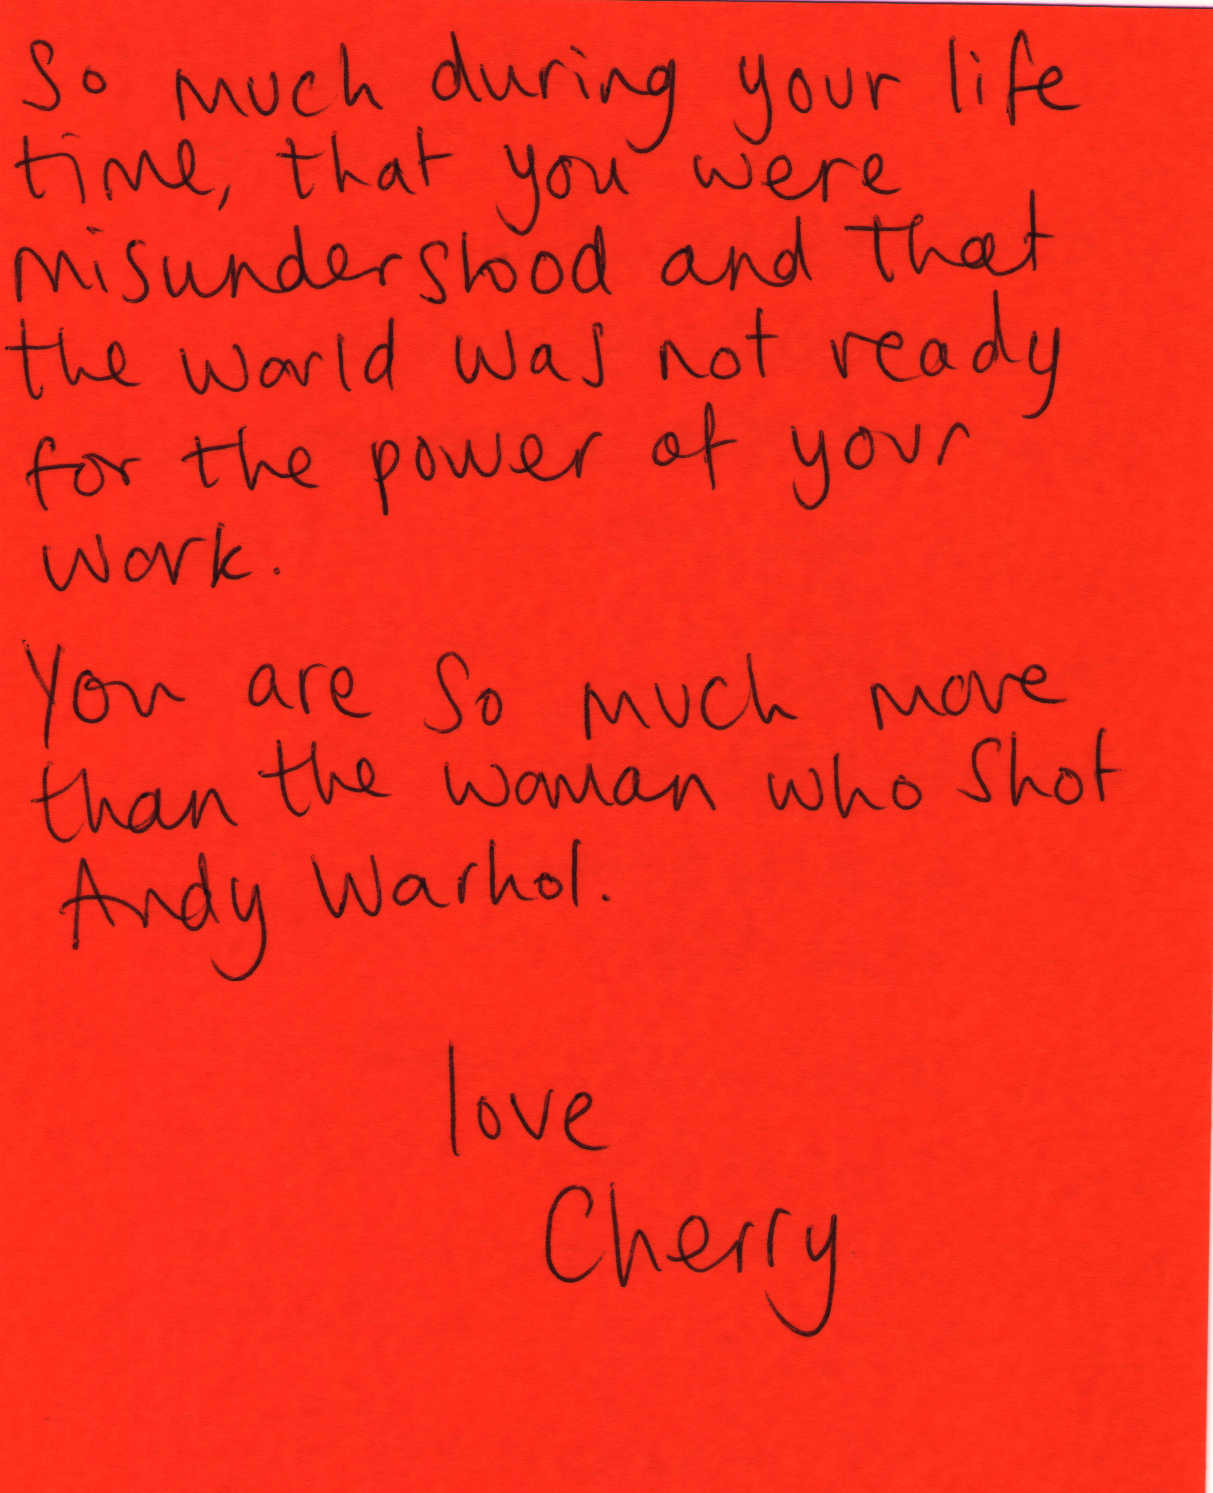 So much during your life
time, that you were
misunderstood and that
the world was not ready
for the power of your
work.
You are so much more
than the woman who shot
Andy Warhol.
love
Cherry